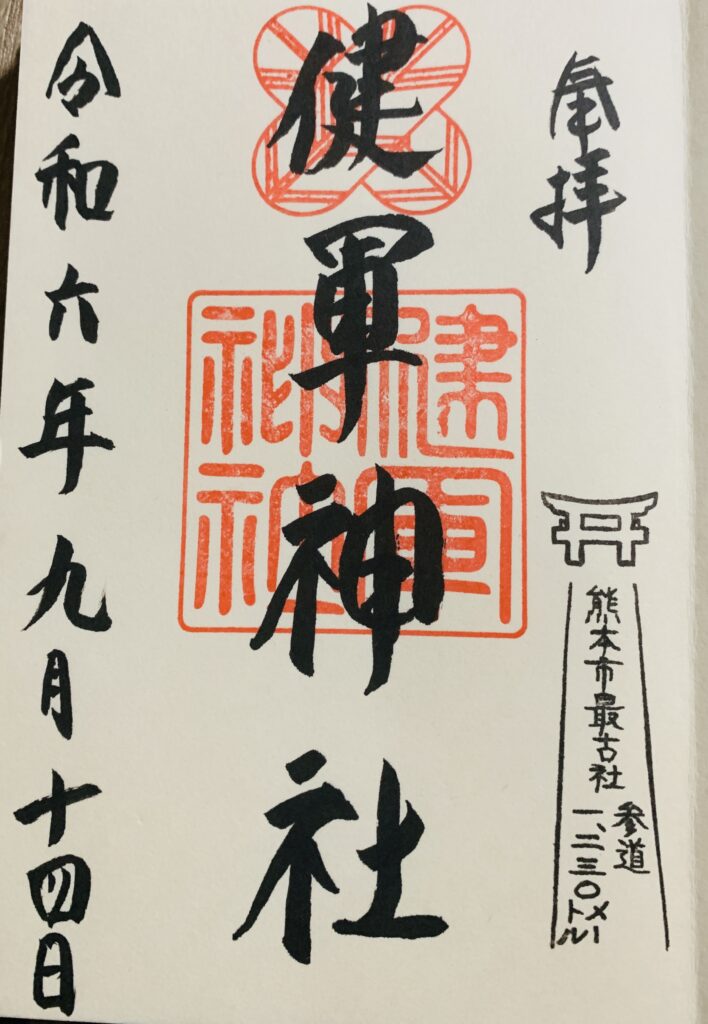 奉拝
熊本市最古社
参道
一、二三〇メートル
健軍神社
健軍
神社
令和六年九月十四日